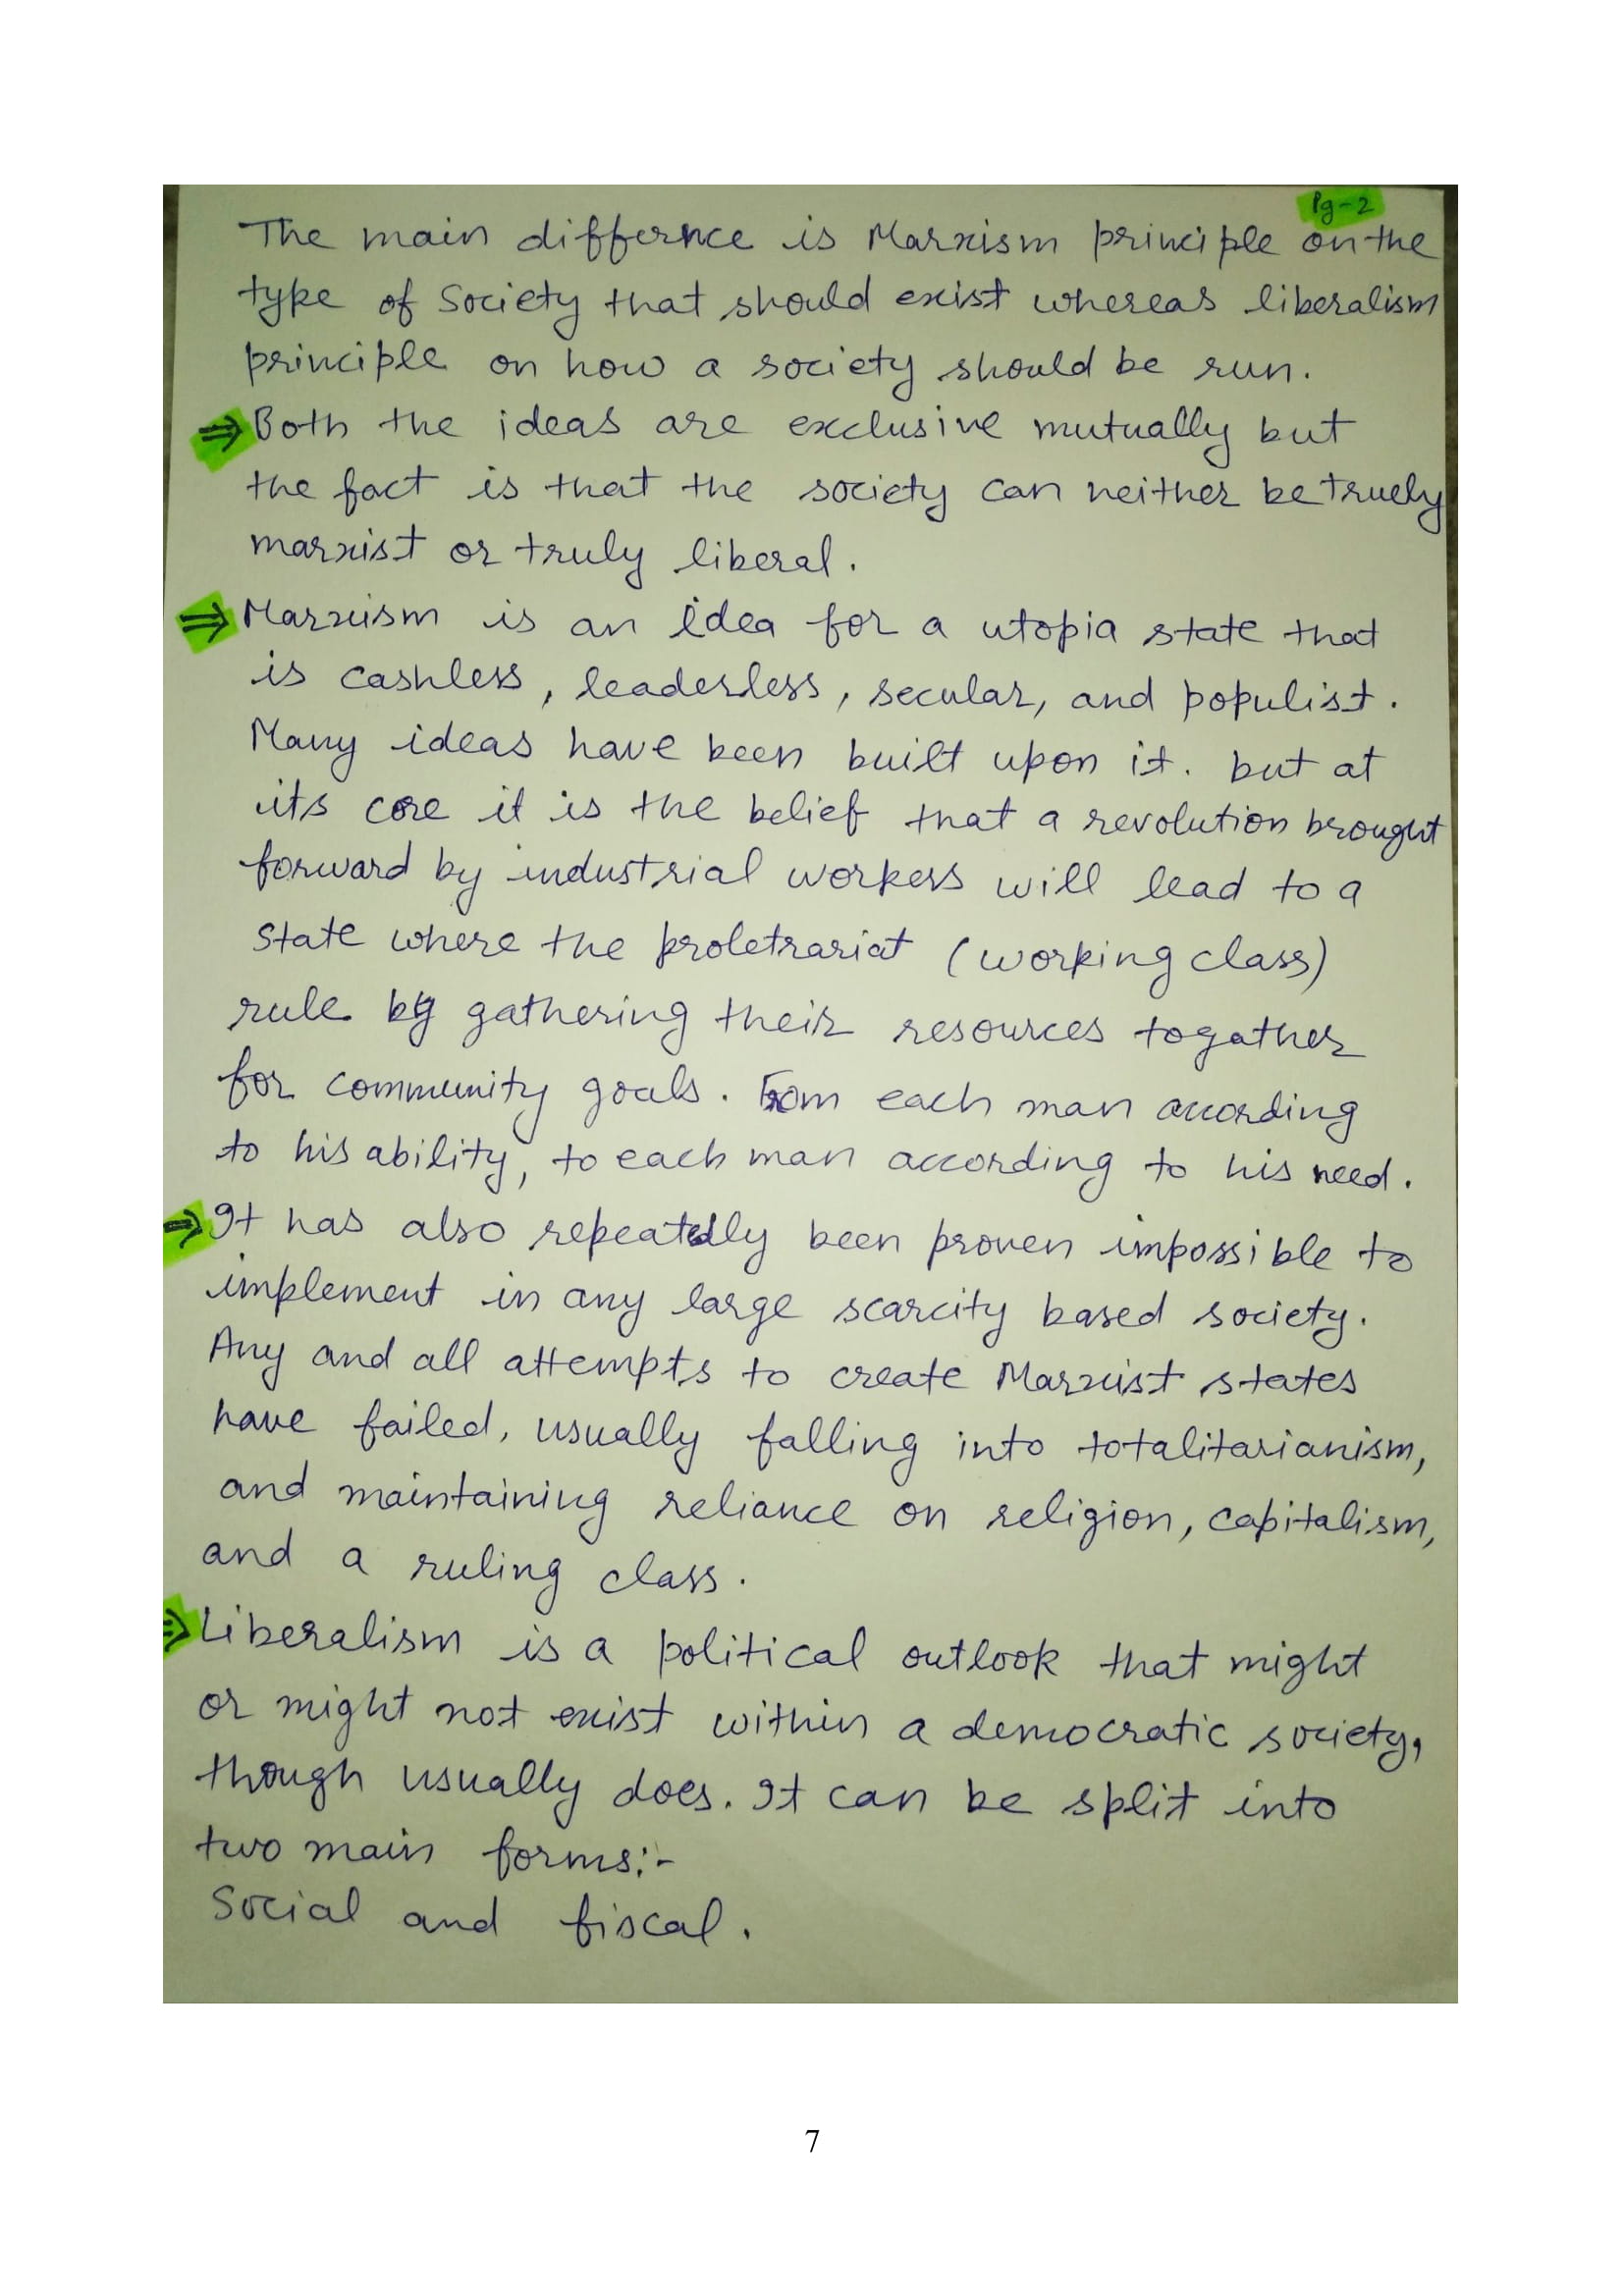 Pg-2
The main differnce is Marxism principle on the
type of Society that should exist whereas liberalism
principle on how a society should be run.
⇒ Both the ideas are exclusive mutually but
the fact is that the society can neither be truely
marxist or truly liberal.
⇒ Marxism is an idea for a utopia state that
is cashless, leaderless, secular, and populist.
Many ideas have been built upon it. but at
its core it is the belief that a revolution brought
forward by industrial workers will lead to a
state where the proletrariat (working class)
rule by gathering their resources togather
for community goals. From each man according
to his ability, to each man according to his need.
⇒ It has also repeatedly been proven impossible to
implement in any large scarcity based society.
Any and all attempts to create Marxist states
have failed, usually falling into totalitarianism,
and maintaining reliance on religion, capitalism,
and a ruling class.
⇒ Liberalism is a political outlook that might
or might not exist within a democratic society,
though usually does. It can be split into
two main forms:-
Social and fiscal.
7